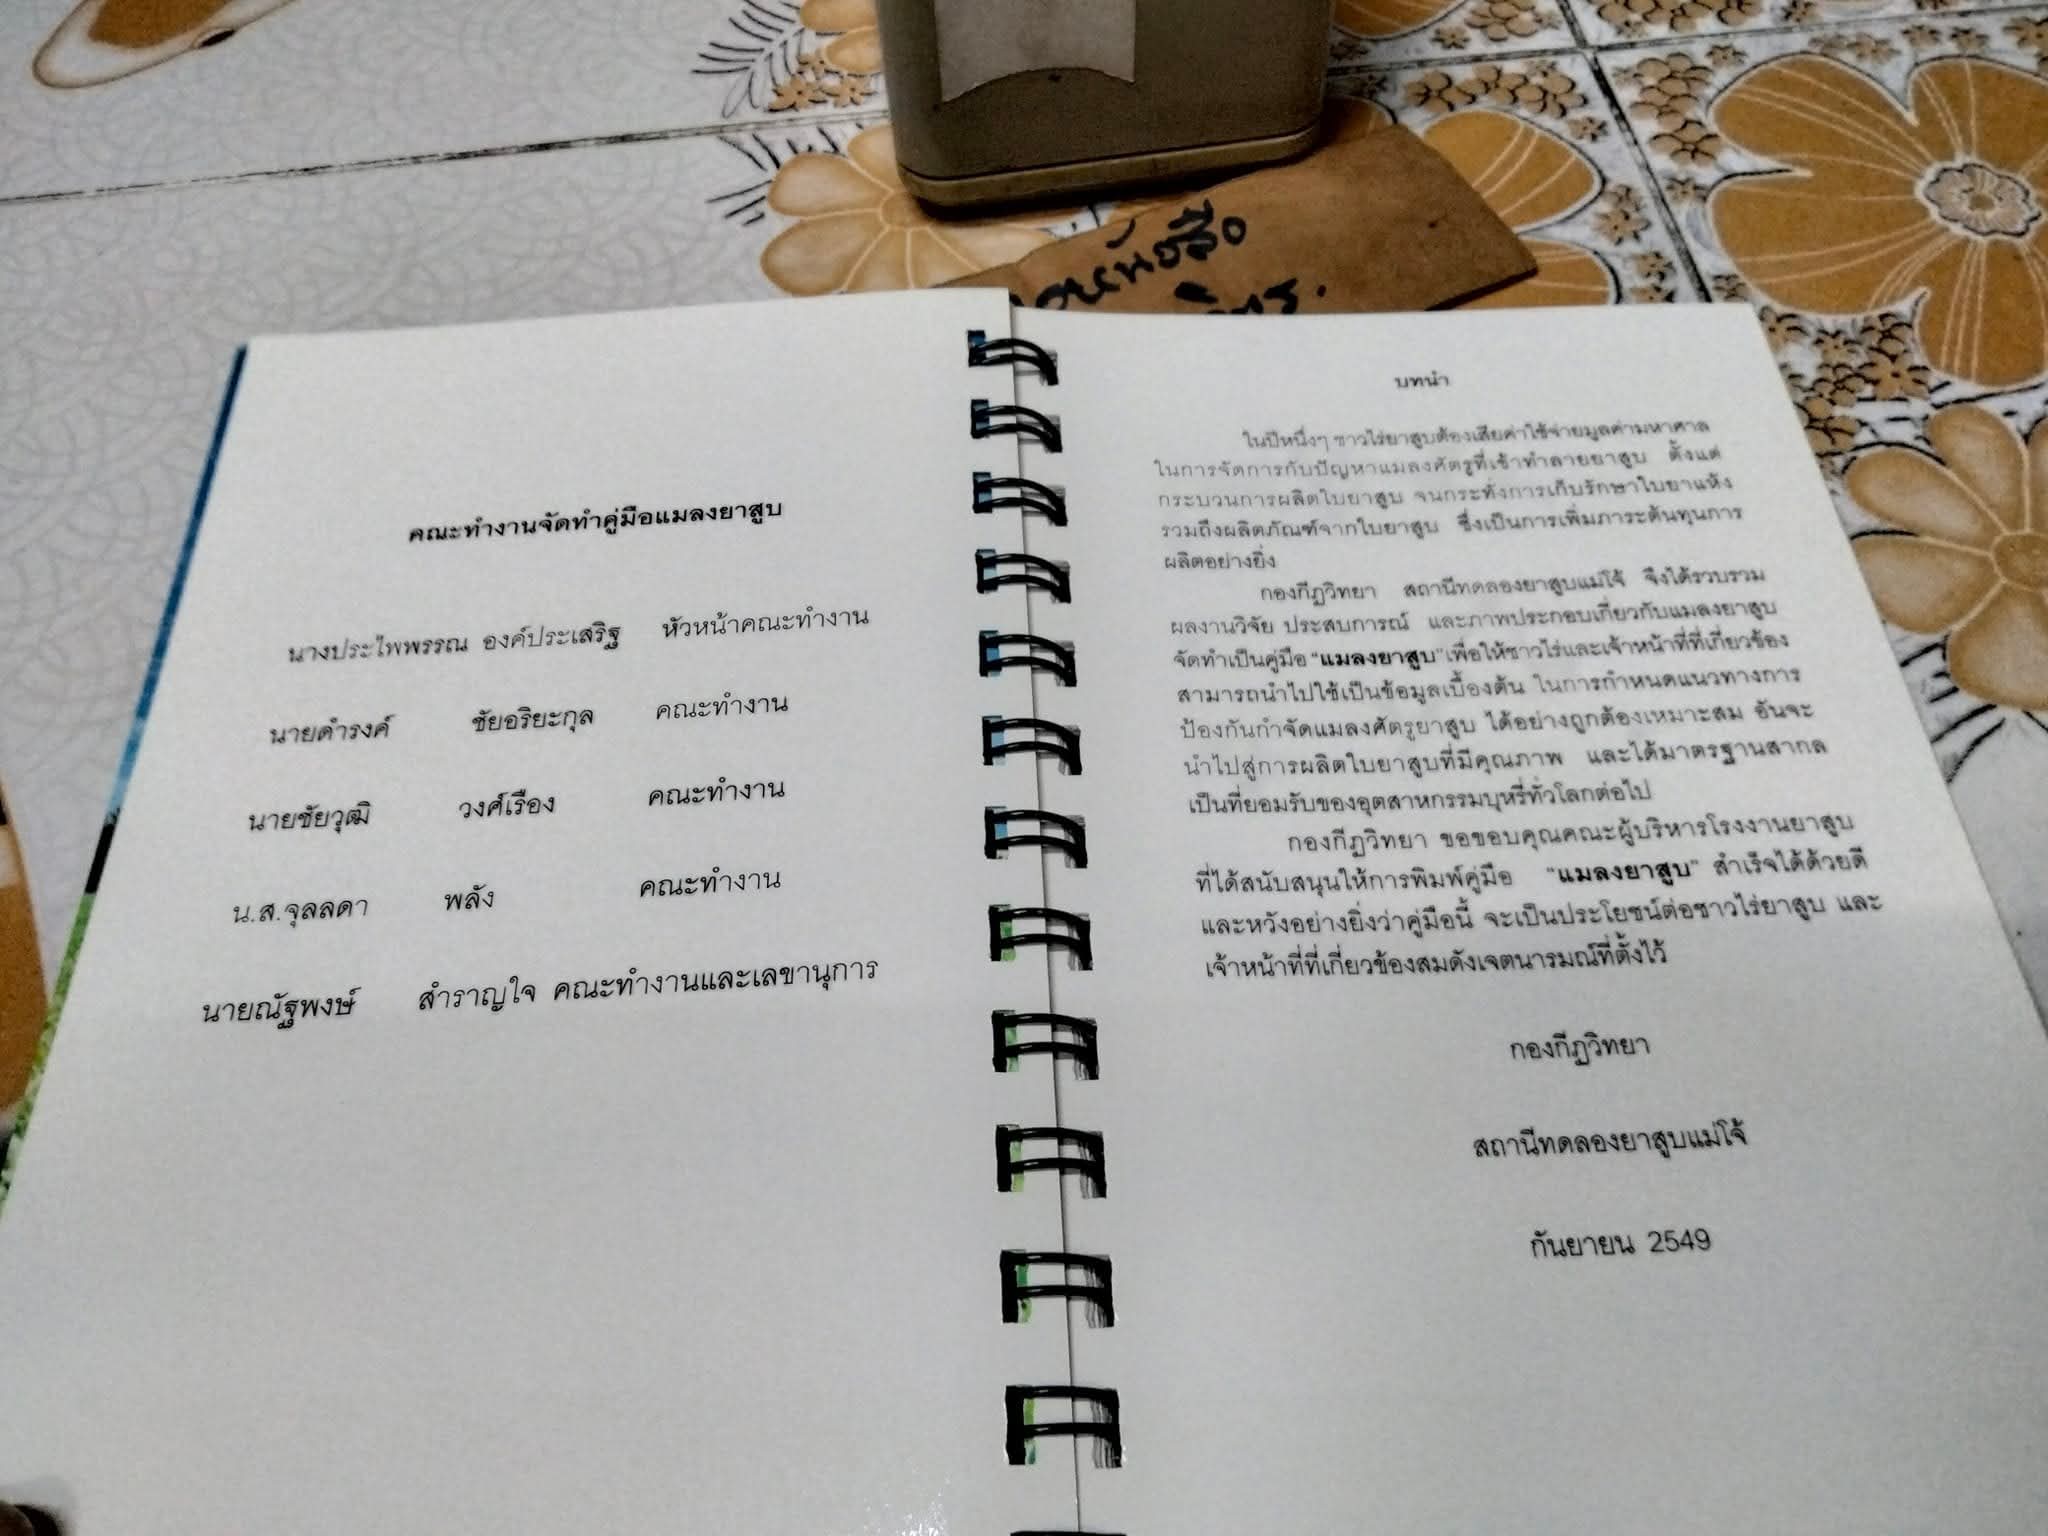 คณะทำงานจัดทำคู่มือแมลงยาสูบ
นางประไพพรรณ องค์ประเสริฐ หัวหน้าคณะทำงาน
นายดำรงค์ ชัยอริยะกุล คณะทำงาน
นายชัยวุฒิ วงศ์เรือง คณะทำงาน
น.ส.จุลลดา พลัง คณะทำงาน
นายณัฐพงษ์ สำราญใจ คณะทำงานและเลขานุการ
บทนำ
ในปีหนึ่งๆ ชาวไร่ยาสูบต้องเสียค่าใช้จ่ายมูลค่ามหาศาล
ในการจัดการกับปัญหาแมลงศัตรูที่เข้าทำลายยาสูบ ตั้งแต่
กระบวนการผลิตใบยาสูบ จนกระทั่งการเก็บรักษาใบยาแห้ง
รวมถึงผลิตภัณฑ์จากใบยาสูบ ซึ่งเป็นการเพิ่มภาระต้นทุนการ
ผลิตอย่างยิ่ง
กองกีฏวิทยา สถานีทดลองยาสูบแม่โจ้ จึงได้รวบรวม
ผลงานวิจัย ประสบการณ์ และภาพประกอบเกี่ยวกับแมลงยาสูบ
จัดทำเป็นคู่มือ "แมลงยาสูบ"เพื่อให้ชาวไร่และเจ้าหน้าที่ที่เกี่ยวข้อง
สามารถนำไปใช้เป็นข้อมูลเบื้องต้น ในการกำหนดแนวทางการ
ป้องกันกำจัดแมลงศัตรูยาสูบ ได้อย่างถูกต้องเหมาะสม อันจะ
นำไปสู่การผลิตใบยาสูบที่มีคุณภาพ และได้มาตรฐานสากล
เป็นที่ยอมรับของอุตสาหกรรมบุหรี่ทั่วโลกต่อไป
กองกีฏวิทยา ขอขอบคุณคณะผู้บริหารโรงงานยาสูบ
ที่ได้สนับสนุนให้การพิมพ์คู่มือ "แมลงยาสูบ" สำเร็จได้ด้วยดี
และหวังอย่างยิ่งว่าคู่มือนี้ จะเป็นประโยชน์ต่อชาวไร่ยาสูบ และ
เจ้าหน้าที่ที่เกี่ยวข้องสมดังเจตนารมณ์ที่ตั้งไว้
กองกีฏวิทยา
สถานีทดลองยาสูบแม่โจ้
กันยายน 2549